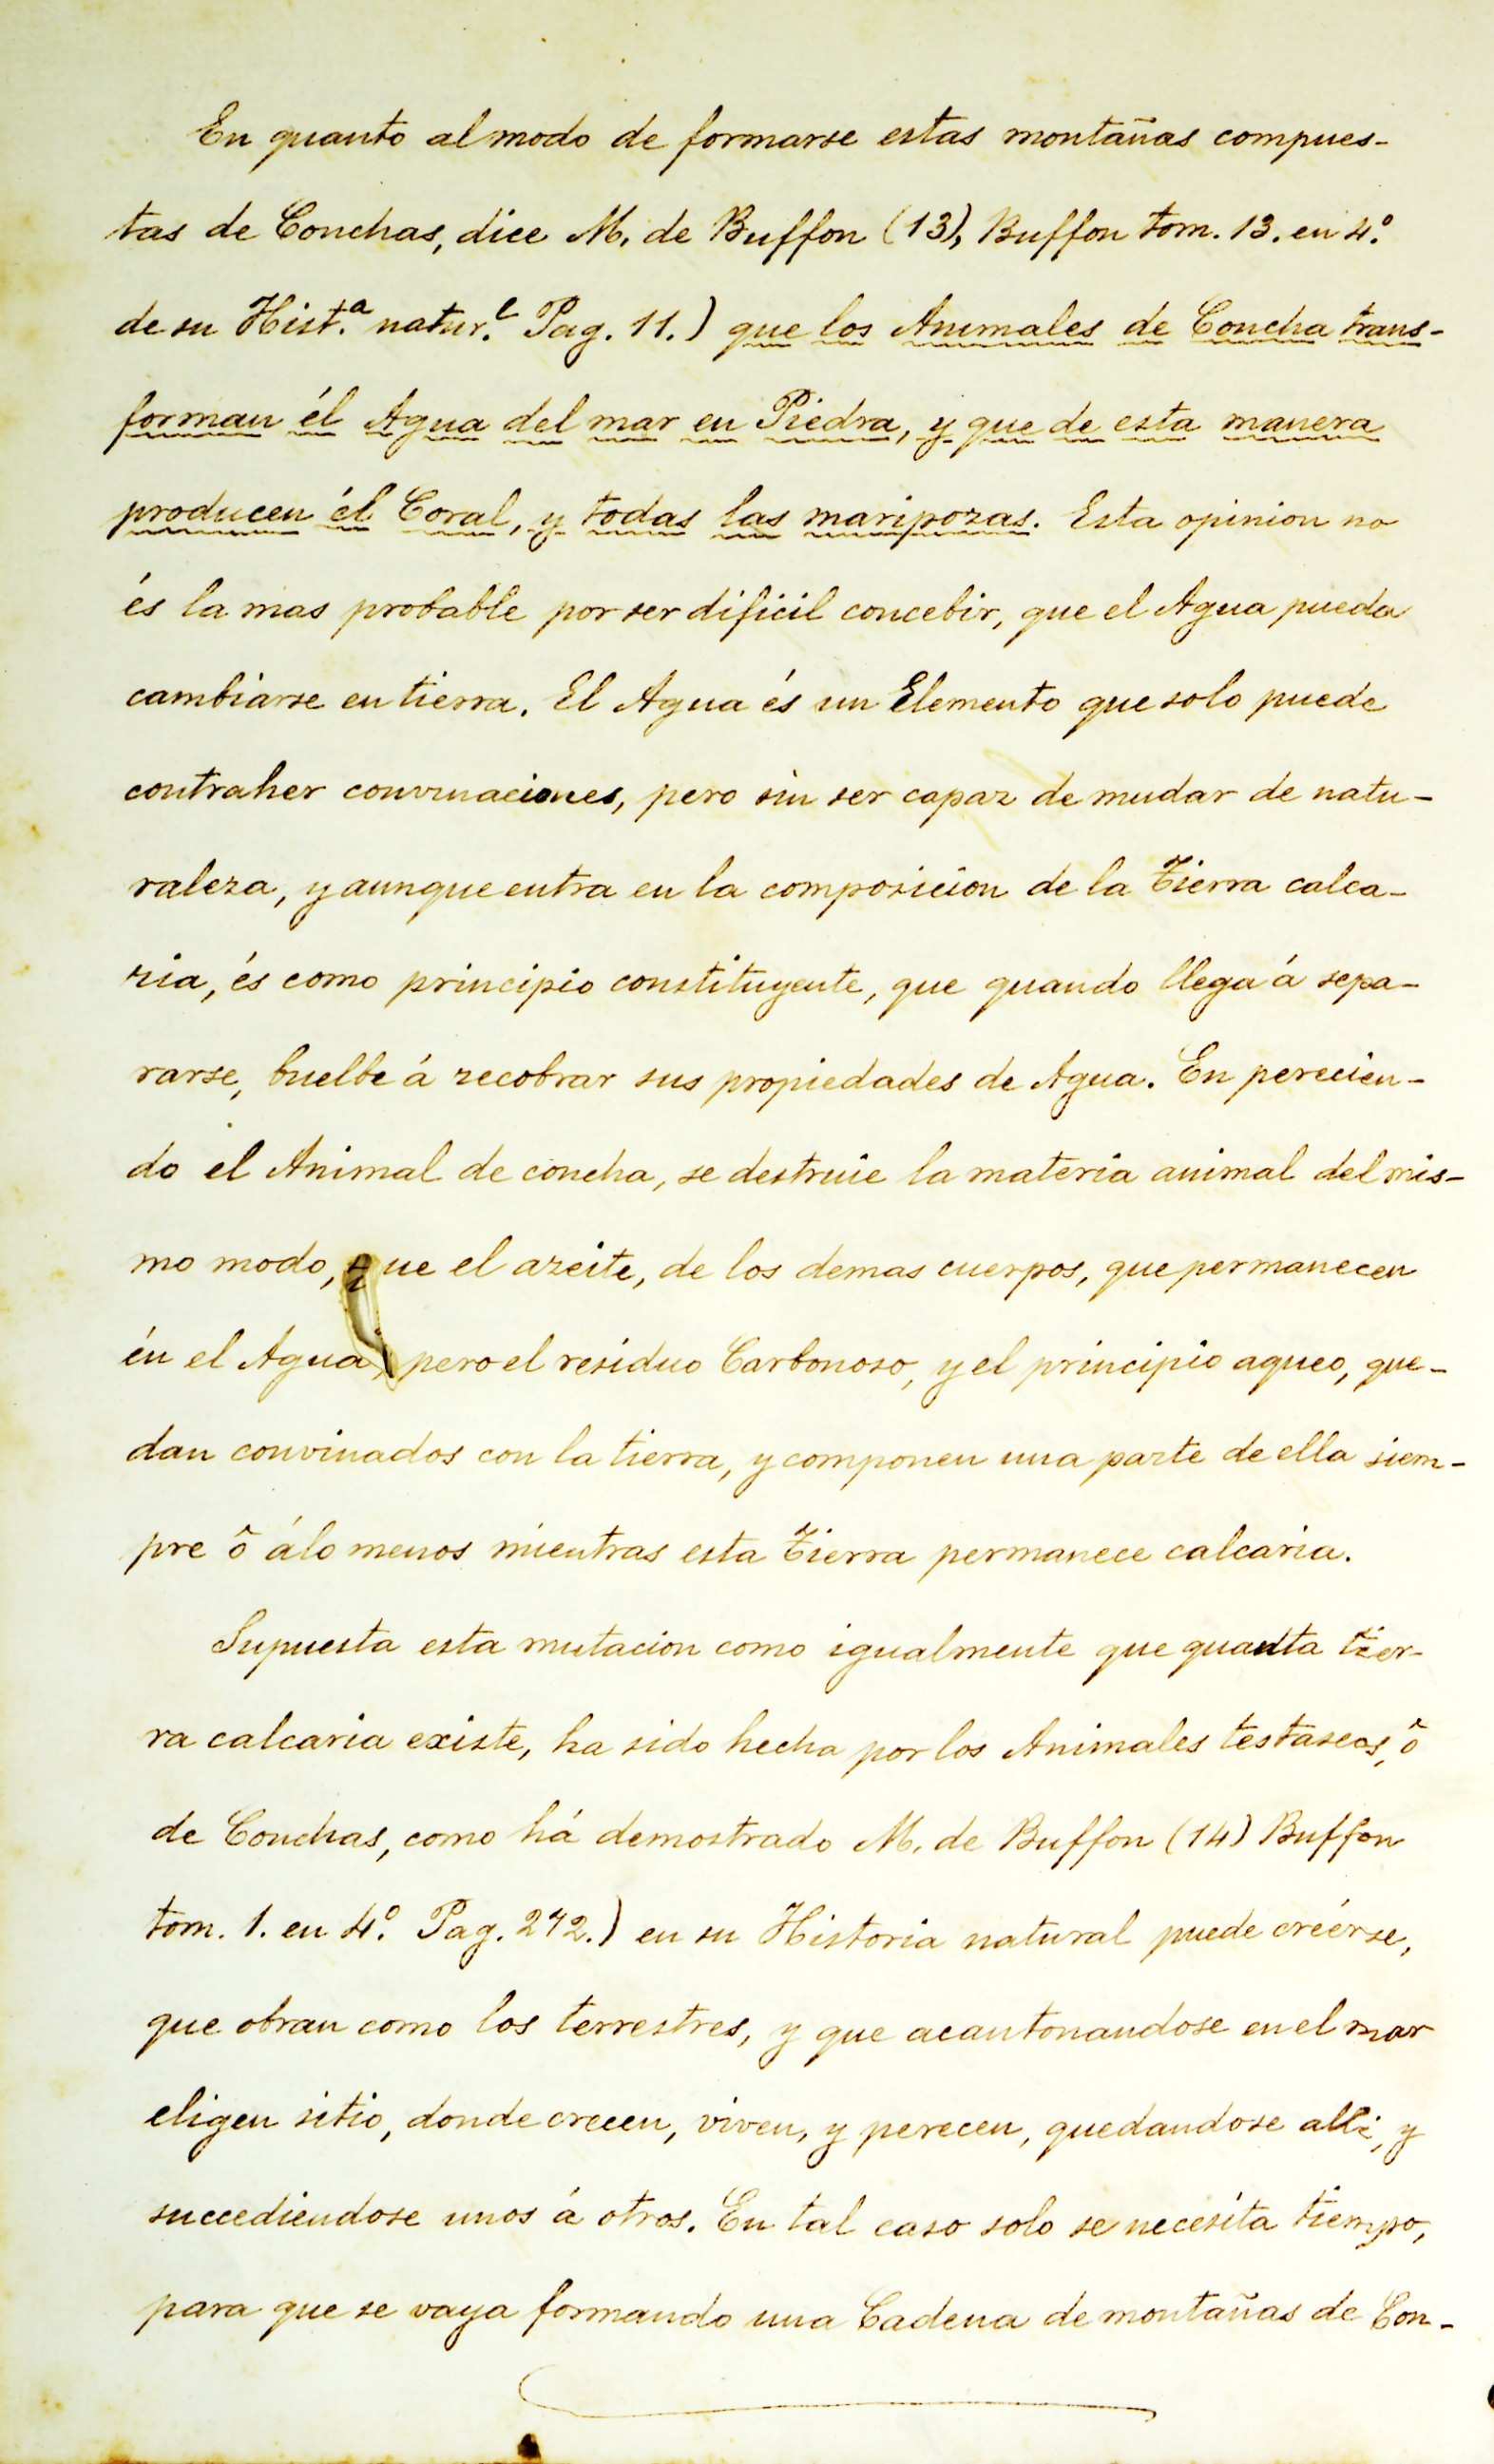 En quanto al modo de formarse estas montañas compues-
tas de Conchas, dice M. de Buffon (13), Buffon tom. 13. en 4.º
de su Hist.ª natur.l Pag. 11.) que los Animales de Concha trans-
forman él Agua del mar en Piedra, y que de esta manera
producen él Coral, y todas las maripozas. Esta opinion no
és la mas probable por ser dificil concebir, que el Agua pueda
cambiarse en tierra. El Agua és un Elemento que solo puede
contraher convinaciones, pero sin ser capaz de mudar de natu-
raleza, y aunque entra en la composicion de la Tierra calca-
ria, és como principio constituyente, que quando llega á sepa-
rarse, buelbe á recobrar sus propiedades de Agua. En perecien-
do el Animal de concha, se destruie la materia animal del mis-
mo modo, que el azeite, de los demas cuerpos, que permanecen
én el Agua, pero el residuo Carbonoso, y el principio aqueo, que-
dan convinados con la tierra, y componen una parte de ella siem-
pre ô álo menos mientras esta Tierra permanece calcaria.
Supuesta esta mutacion como igualmente que quanta tier-
ra calcaria existe, ha sido hecha por los Animales testaseos, ô
de Conchas, como há demostrado M. de Buffon (14) Buffon
tom. 1. en 4.º Pag. 272.) en su Historia natural puede créerse,
que obran como los terrestres, y que acantonandose en el mar
eligen sitio, donde crecen, viven, y perecen, quedandose alli, y
succediendose unos á otros. En tal caso solo se necesita tiempo,
para que se vaya formando una Cadena de montañas de Con-